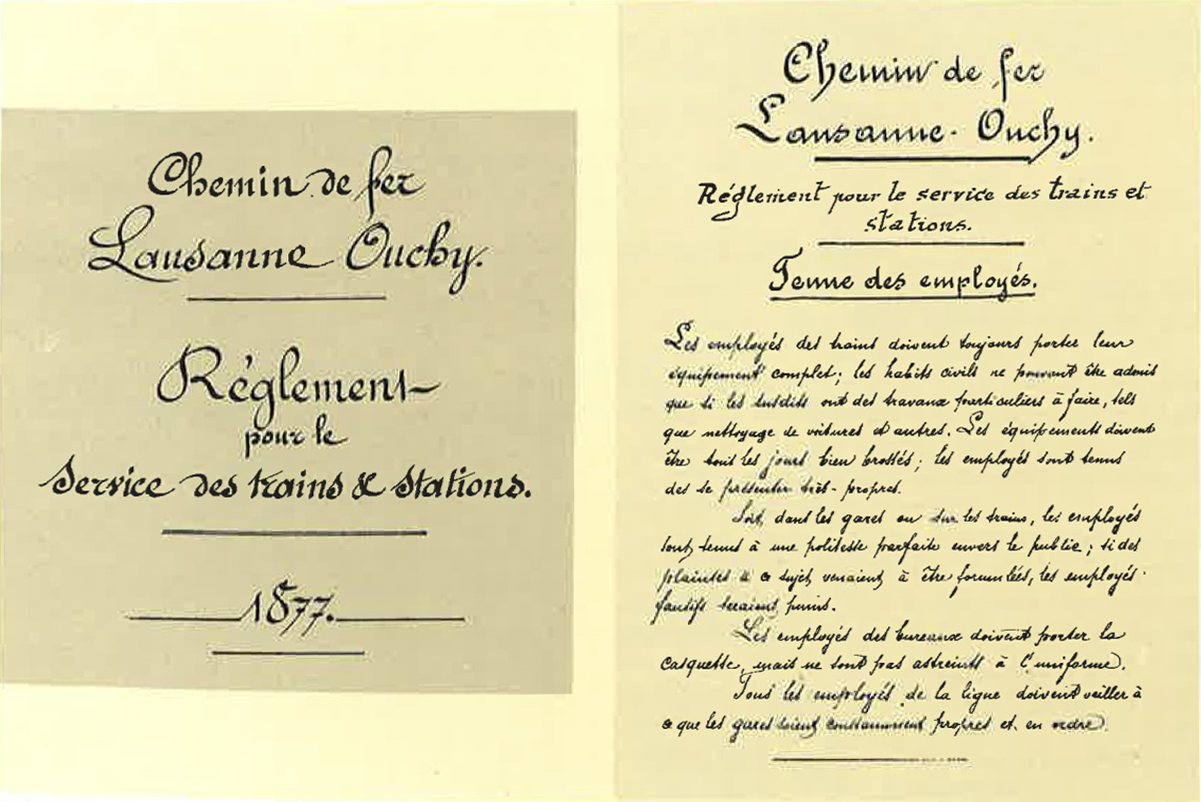 Chemin de fer
Lausanne Ouchy.
Réglement
pour le
Service des trains & Stations.
1877.
Chemin de fer
Lausanne-Ouchy.
Réglement pour le service des trains et
stations.
Tenue des employés.
Les employés des trains doivent toujours porter leur
équipement complet; les habits civils ne pouvant être admis
que si les susdits ont des travaux particuliers à faire, tels
que nettoyage de voitures et autres. Les équipements doivent
être tous les jours bien brossés; les employés sont tenus
des se présenter très-propres.
Soit, dans les gares ou sur les trains, les employés
sont tenus à une politesse parfaite envers le public; si des
plaintes à ce sujet, venaient à être formulées, les employés
fautifs seraient punis.
Les employés des bureaux doivent porter la
casquette, mais ne sont pas astreints à l'uniforme.
Tous les employés de la ligne doivent veiller à
ce que les gares soient constamment propres et en ordre.